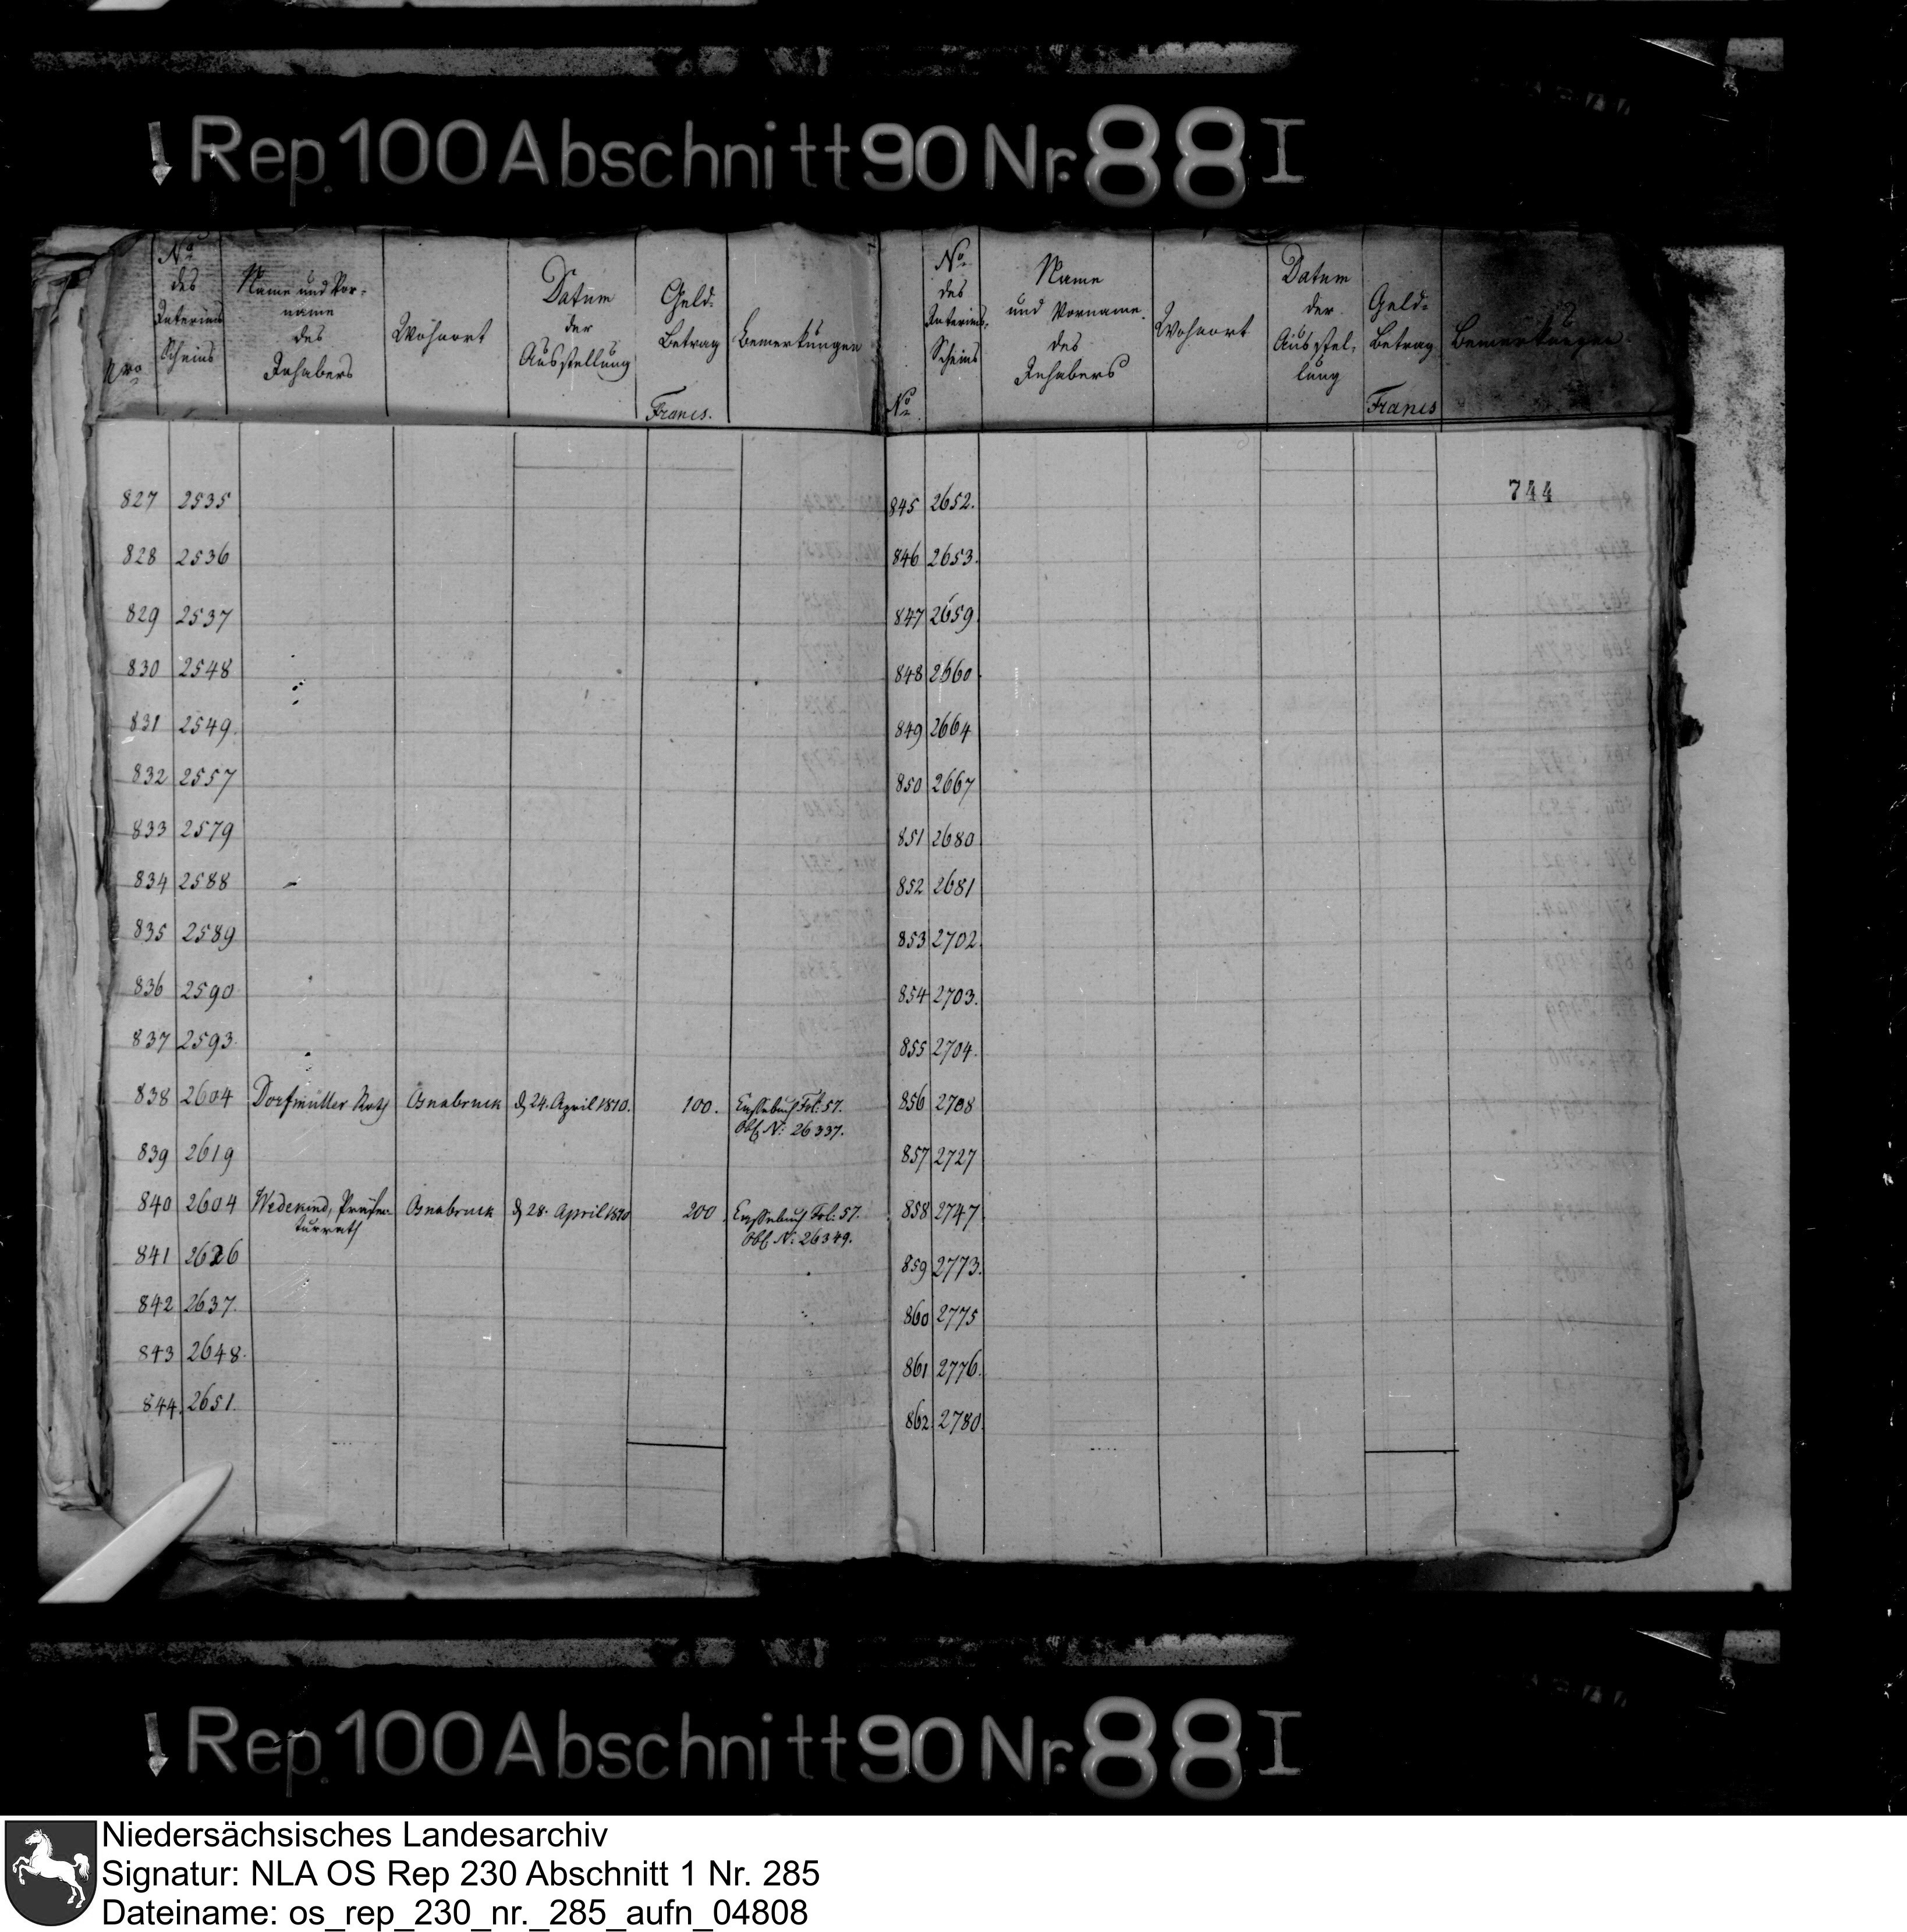 Rep. 100 Abschnitt 90 Nr. 88 I
Nro
No
des
Interims
Scheins
Name und Vor-
name
des
Inhabers
Wohnort
Datum
der
Ausstellung
Geld-
Betrag
Francs.
Bemerkungen
827 2535
828 2536
829 2537
830 2548
831 2549.
832 2557
833 2579
834 2588
835 2589
836 2590
837 2593.
838 2604 Dorfmüller Osnabruck d 24. April 1810. 100. Fol: 57.
Obl. N: 26337.
839 2619
840 2604 Wedekind, Präfec
turrath Osnabruck d 28. April 1810 200 Fol: 57.
Obl. N: 26349.
841 2626
842 2637.
843 2648.
844. 2651.
No
No
des
Interims-
Scheins
Name
und Vorname.
des
Inhabers
Wohnort
Datum
der
Ausstel-
lung
Geld-
Betrag
Francs
Bemerkungen.
744
845 2652.
846 2653.
847 2659.
848 2660.
849 2664
850 2667
851 2680
852 2681
853 2702.
854 2703.
855 2704.
856 2708
857 2727
858 2747
859 2773.
860 2775
861 2776.
862. 2780.
Rep. 100 Abschnitt 90 Nr. 88 I
Niedersächsisches Landesarchiv
Signatur: NLA OS Rep 230 Abschnitt 1 Nr. 285
Dateiname: os_rep_230_nr._285_aufn_04808